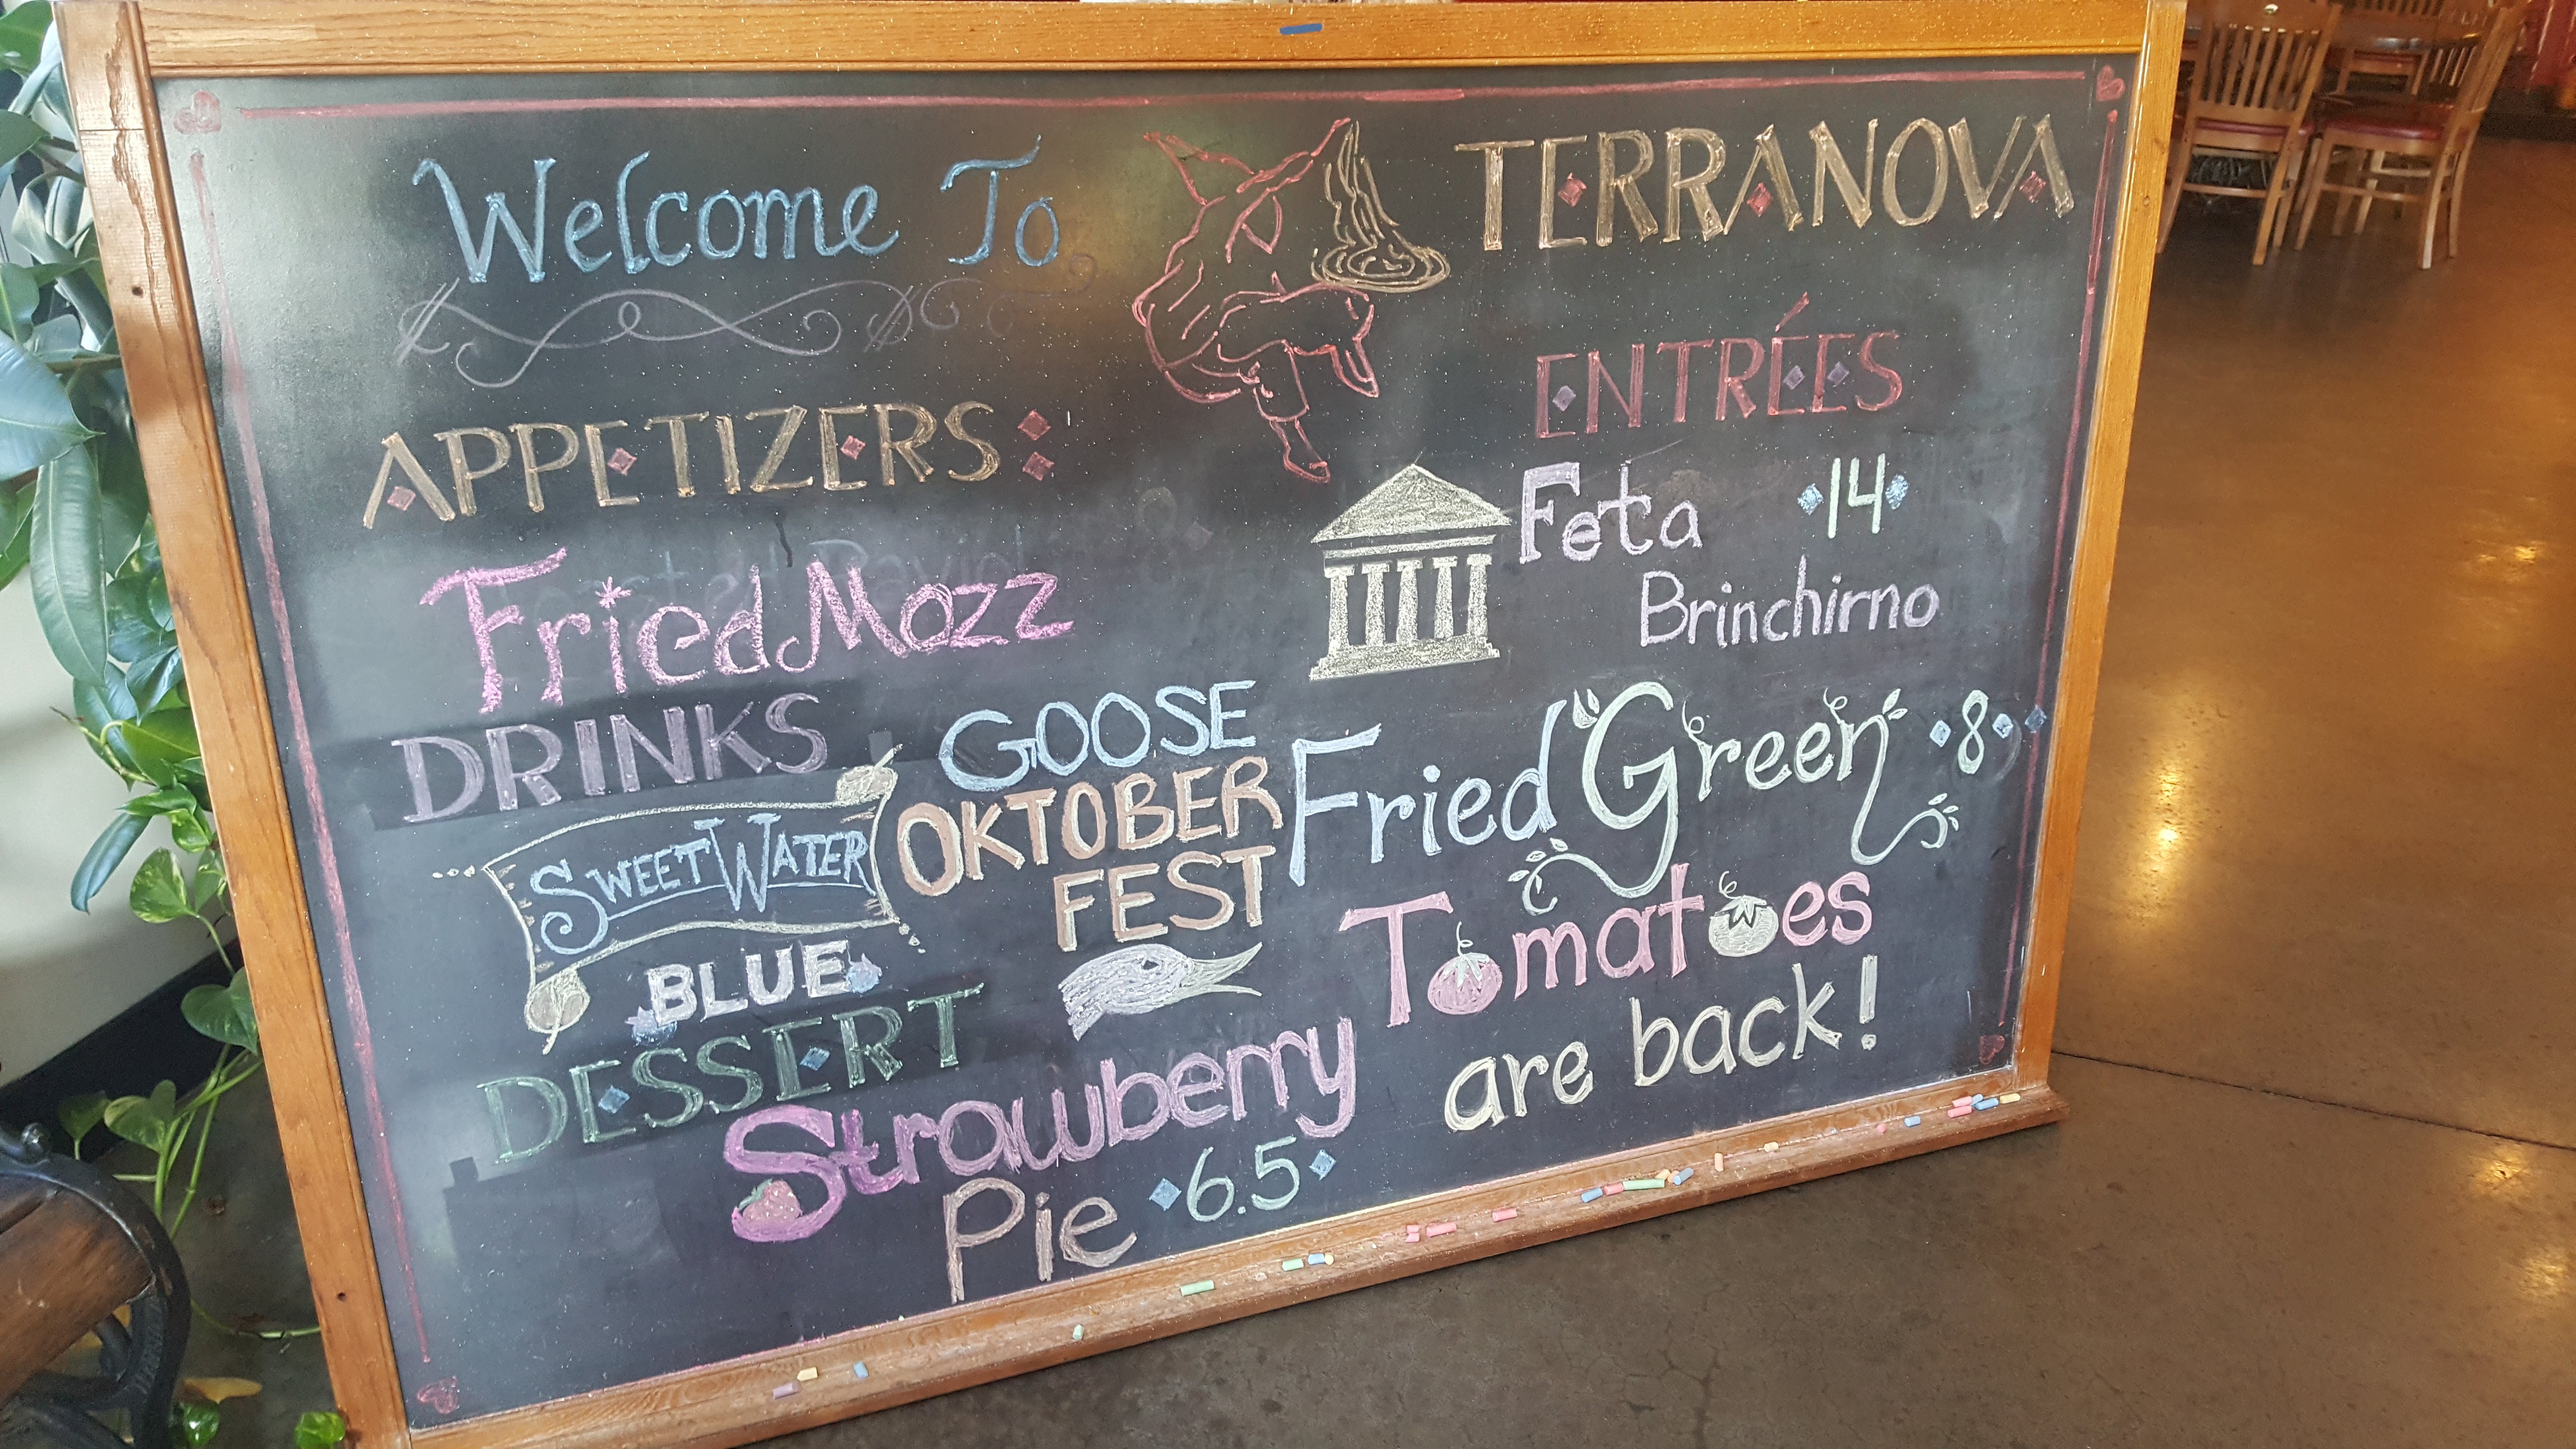 Welcome To TERRANOVA
APPETIZERS:
Fried Mozz
DRINKS
SWEETWATER
BLUE
GOOSE
OKTOBER
FEST
DESSERT
Strawberry
Pie 6.5
ENTRÉES
Feta 14
Brinchirno
Fried Green 8
Tomatoes
are back!